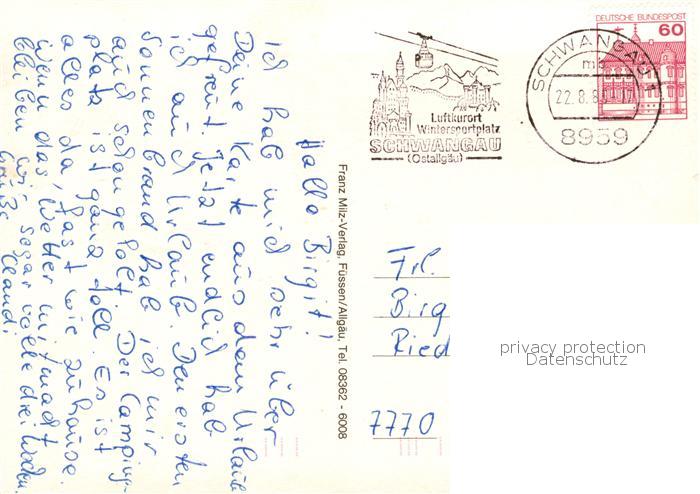 Hallo Birgit!
ich hab mich sehr über
Deine Karte aus dem Urlaub
gefreut. Jetzt endlich hab
ich auch Urlaub. Den ersten
Sonnenbrand hab ich mir
auch schon geholt. Der Camping-
platz ist ganz toll. Es ist
alles da, fast wie zuhause.
Wenn das Wetter mitmacht
bleiben wir sogar volle drei Wochen.
Grüße Claudi
Franz Milz-Verlag, Füssen/Allgäu, Tel. 08362 - 6008
Luftkurort
Wintersportplatz
SCHWANGAU
(Ostallgäu)
DEUTSCHE BUNDESPOST
60
SCHWANGAU 1
mb
22.8.8
8959
Frl.
Birg
Ried
7770
privacy protection
Datenschutz